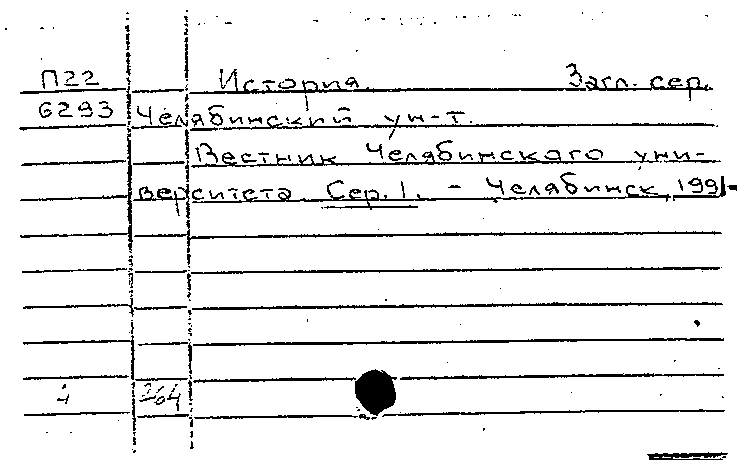 П22 История. Загл. сер.
6293 Челябинский ун-т.
Вестник Челябинского уни-
верситета Сер. 1. - Челябинск, 1991-